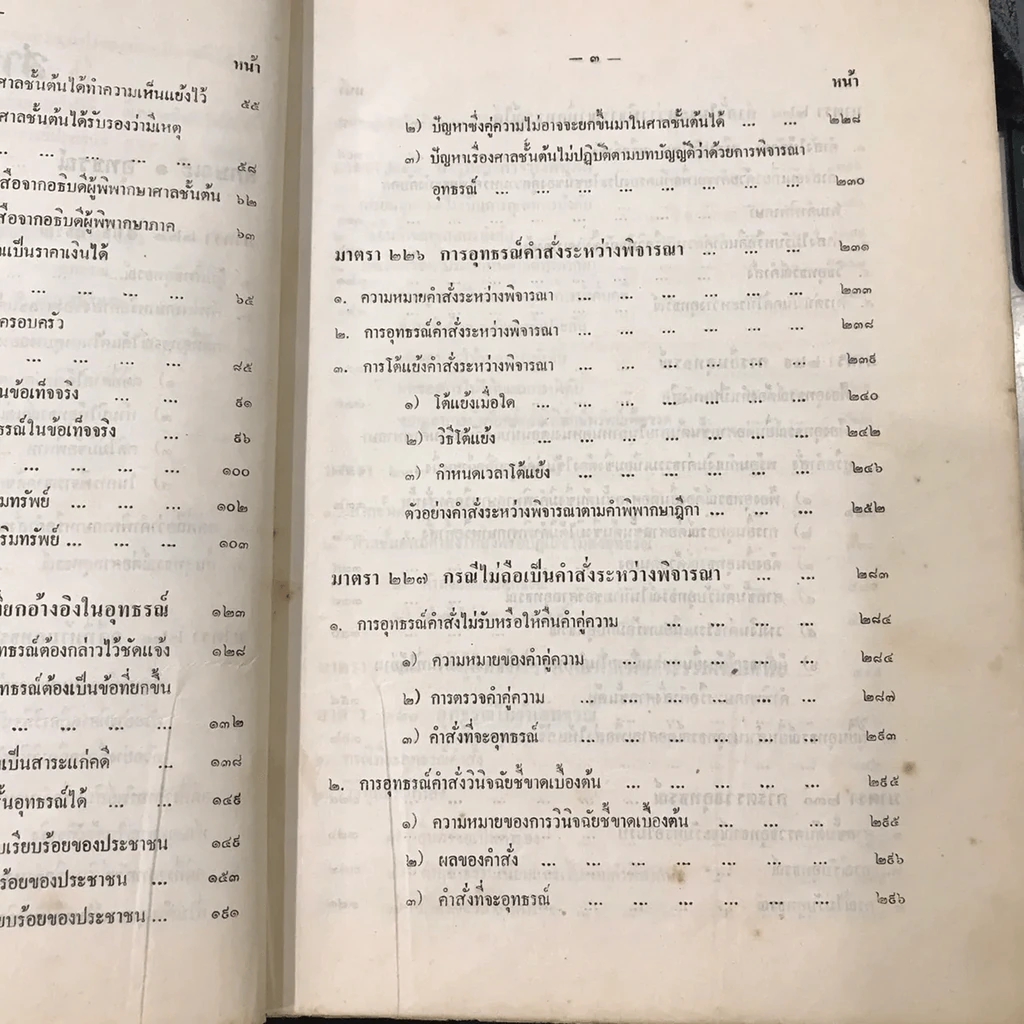 หน้า
ศาลชั้นต้นได้ทำความเห็นแย้งไว้ ๕๕
ศาลชั้นต้นได้รับรองว่ามีเหตุ
... ... ... ... ... ๕๘
สือจากอธิบดีผู้พิพากษาศาลชั้นต้น ๖๒
สือจากอธิบดีผู้พิพากษาภาค ๖๓
ณเป็นราคาเงินได้
... ... ... ... ๖๕
ครอบครัว
... ... ... ... ๘๕
นข้อเท็จจริง ... ... ๙๑
ธรณ์ในข้อเท็จจริง ... ๙๖
... ... ... ... ๑๐๐
มทรัพย์ ... ... ... ๑๐๒
ริมทรัพย์ ... ... ... ๑๐๓
ที่ยกอ้างอิงในอุทธรณ์ ๑๒๓
ทธรณ์ต้องกล่าวไว้ชัดแจ้ง ๑๒๘
ทธรณ์ต้องเป็นข้อที่ยกขึ้น
... ... ... ... ๑๓๒
เป็นสาระแก่คดี ... ๑๓๘
ั้นอุทธรณ์ได้ ... ... ๑๔๙
บเรียบร้อยของประชาชน ๑๔๙
ร้อยของประชาชน ... ๑๕๓
ยบร้อยของประชาชน ... ๑๙๑
— ๓ —
หน้า
๒) ปัญหาซึ่งคู่ความไม่อาจจะยกขึ้นมาในศาลชั้นต้นได้ ... ... ๒๒๘
๓) ปัญหาเรื่องศาลชั้นต้นไม่ปฏิบัติตามบทบัญญัติว่าด้วยการพิจารณา
อุทธรณ์ ... ... ... ... ... ... ... ... ๒๓๐
มาตรา ๒๒๖ การอุทธรณ์คำสั่งระหว่างพิจารณา ... ... ... ๒๓๑
๑. ความหมายคำสั่งระหว่างพิจารณา ... ... ... ... ... ๒๓๓
๒. การอุทธรณ์คำสั่งระหว่างพิจารณา ... ... ... ... ... ... ๒๓๘
๓. การโต้แย้งคำสั่งระหว่างพิจารณา ... ... ... ... ... ... ๒๓๙
๑) โต้แย้งเมื่อใด ... ... ... ... ... ... ... ๒๔๐
๒) วิธีโต้แย้ง ... ... ... ... ... ... ... ๒๔๒
๓) กำหนดเวลาโต้แย้ง ... ... ... ... ... ... ๒๔๖
ตัวอย่างคำสั่งระหว่างพิจารณาตามคำพิพากษาฎีกา ... ... ... ๒๕๒
มาตรา ๒๒๗ กรณีไม่ถือเป็นคำสั่งระหว่างพิจารณา ... ... ๒๘๓
๑. การอุทธรณ์คำสั่งไม่รับหรือให้คืนคำคู่ความ ... ... ... ... ๒๘๔
๑) ความหมายของคำคู่ความ ... ... ... ... ... ๒๘๔
๒) การตรวจคำคู่ความ ... ... ... ... ... ... ๒๘๗
๓) คำสั่งที่จะอุทธรณ์ ... ... ... ... ... ... ๒๙๓
๒. การอุทธรณ์คำสั่งวินิจฉัยชี้ขาดเบื้องต้น ... ... ... ... ... ๒๙๕
๑) ความหมายของการวินิจฉัยชี้ขาดเบื้องต้น ... ... ... ๒๙๕
๒) ผลของคำสั่ง ... ... ... ... ... ... ... ๒๙๖
๓) คำสั่งที่จะอุทธรณ์ ... ... ... ... ... ... ๒๙๖